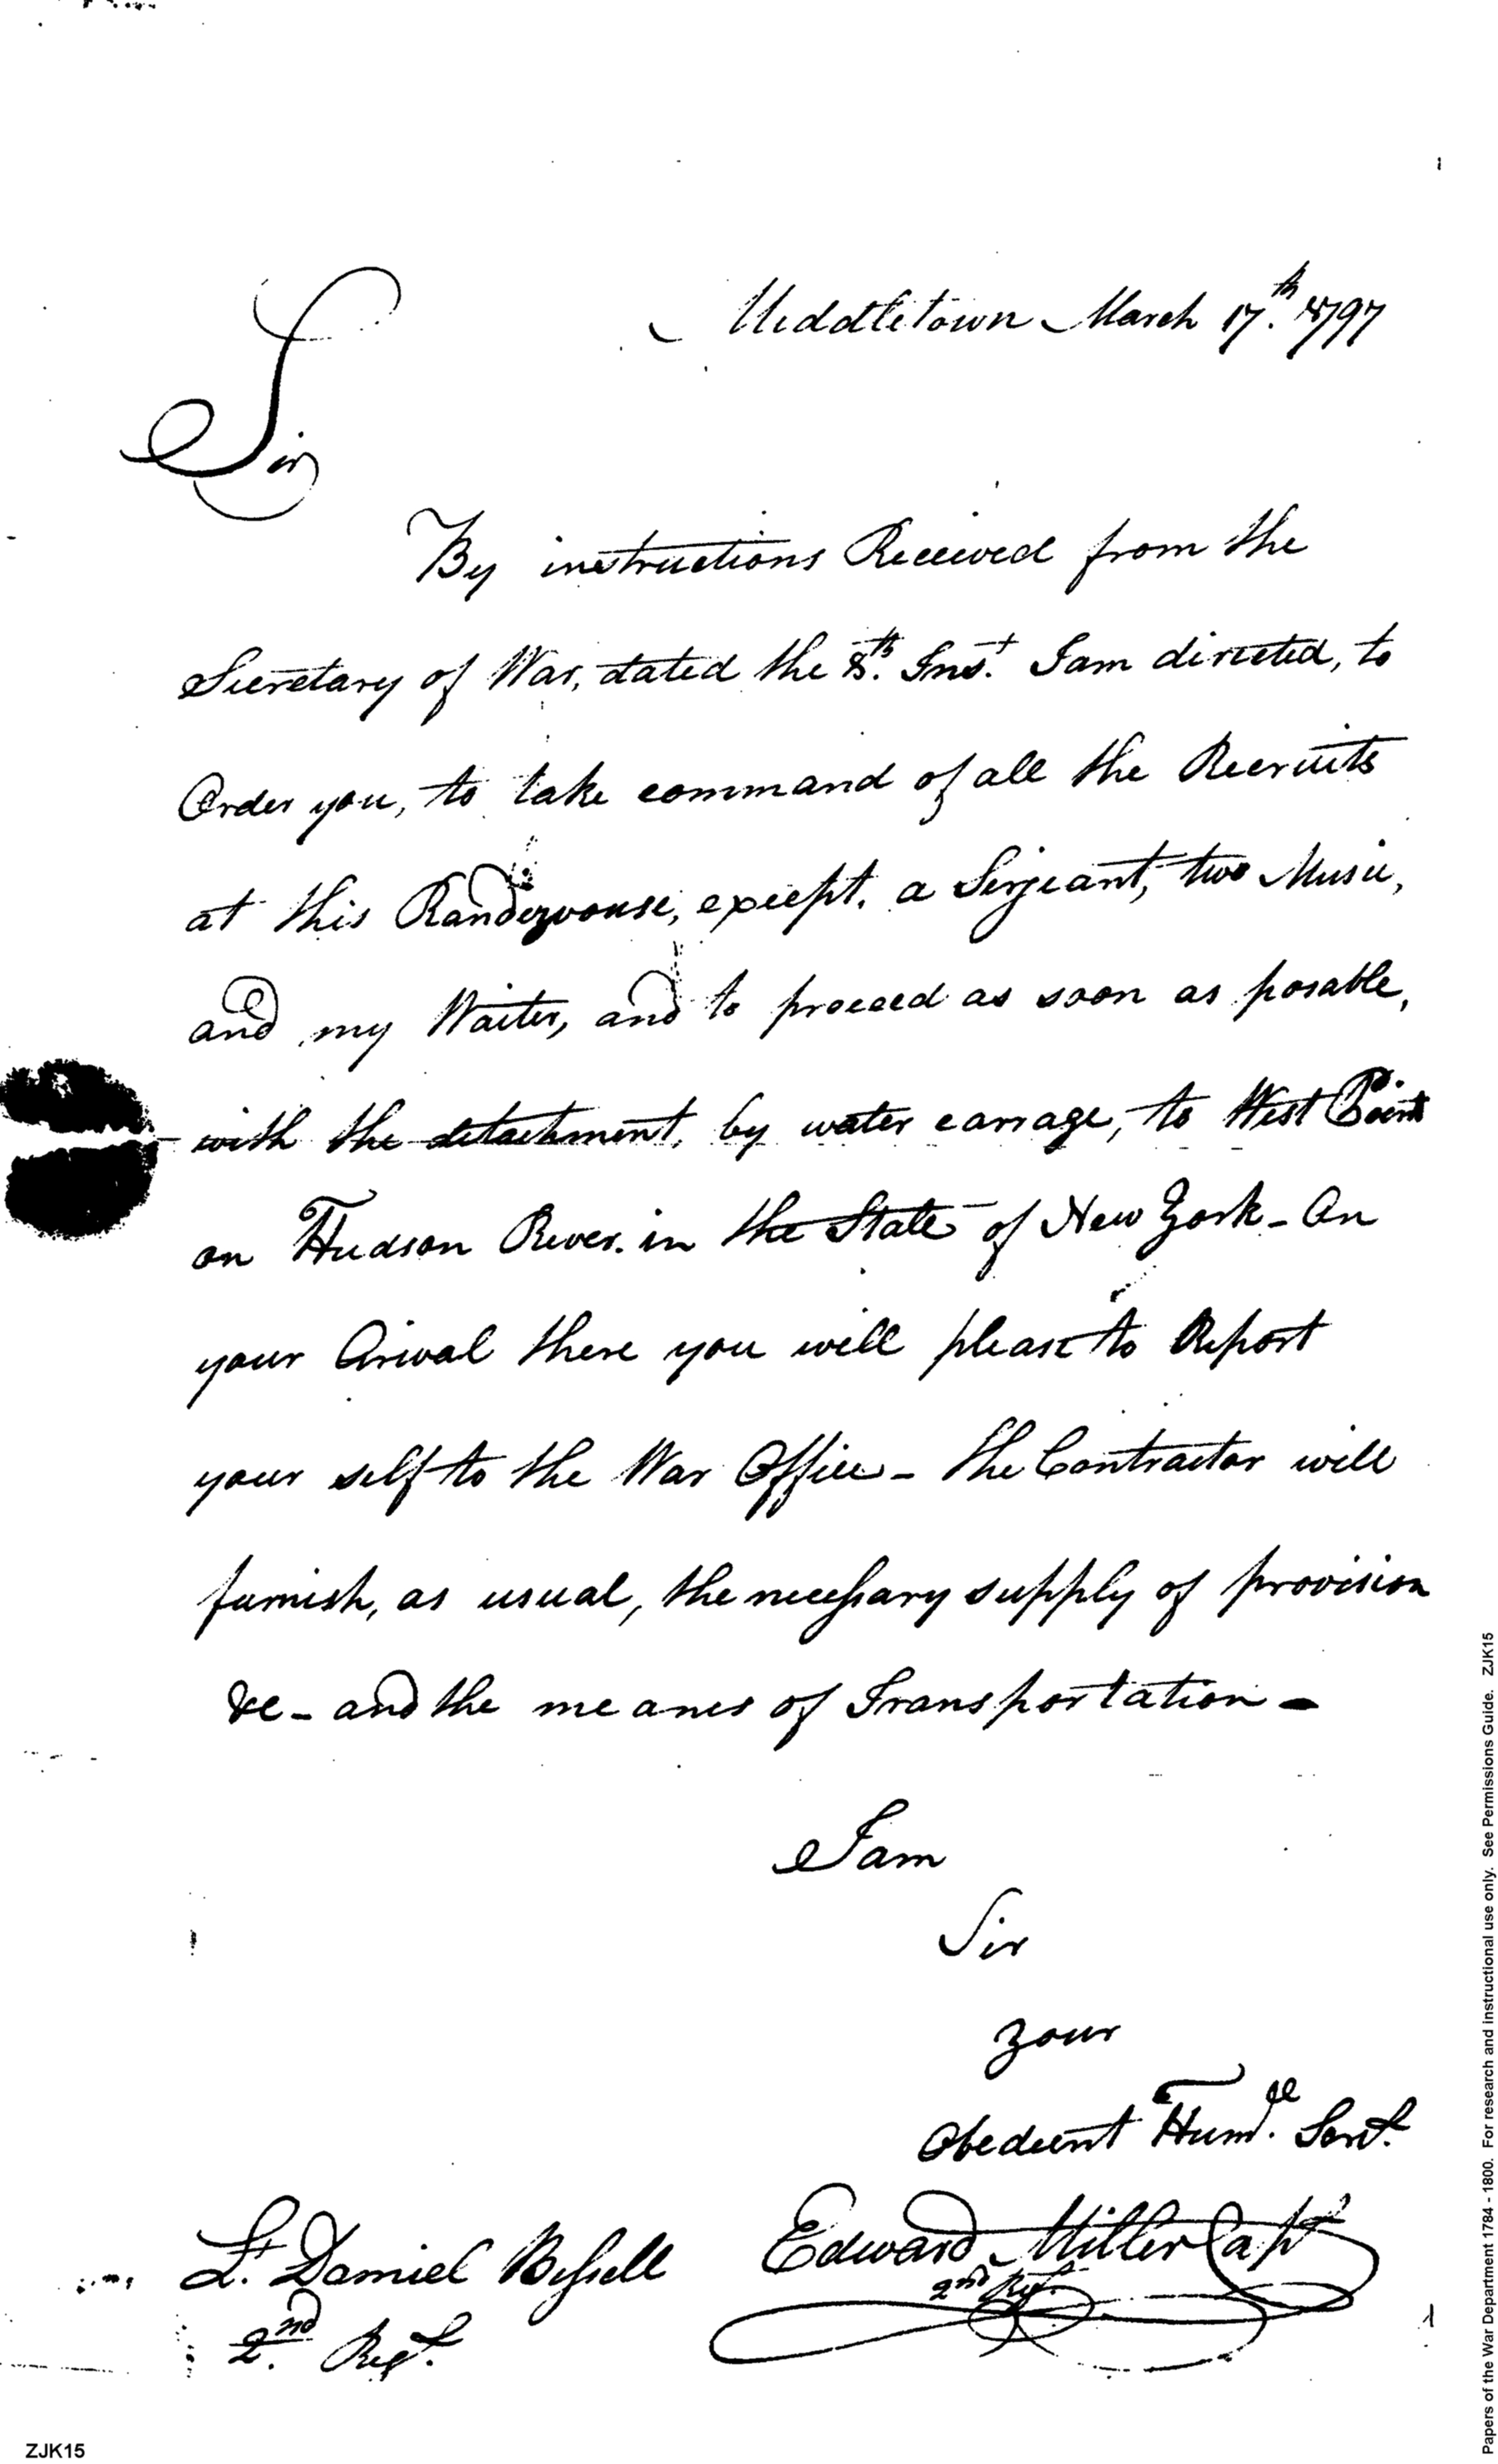 Middletown March 17th. 1797
Sir
By instructions Received from the
Secretary of War, dated the 8th. Inst. I am directed, to
Order you, to take command of all the Recruits
at this Randezvouse, except. a Serjeant, two Music,
and my Waiter, and to proceed as soon as posable,
with the detachment, by water carrage, to West Point
on Hudson River. in the State of New York - On
your Arival there you will please to Report
your self to the War Office - the Contractor will
furnish, as usual, the necessary supply of provision
&c - and the meanes of Transportation -
I am
Sir
your
Obedient Humle. Servt.
Edward Miller Capt
2nd Regt.
Lt. Daniel Bissell
2nd. Regt.
ZJK15
Papers of the War Department 1784 - 1800. For research and instructional use only. See Permissions Guide. ZJK15